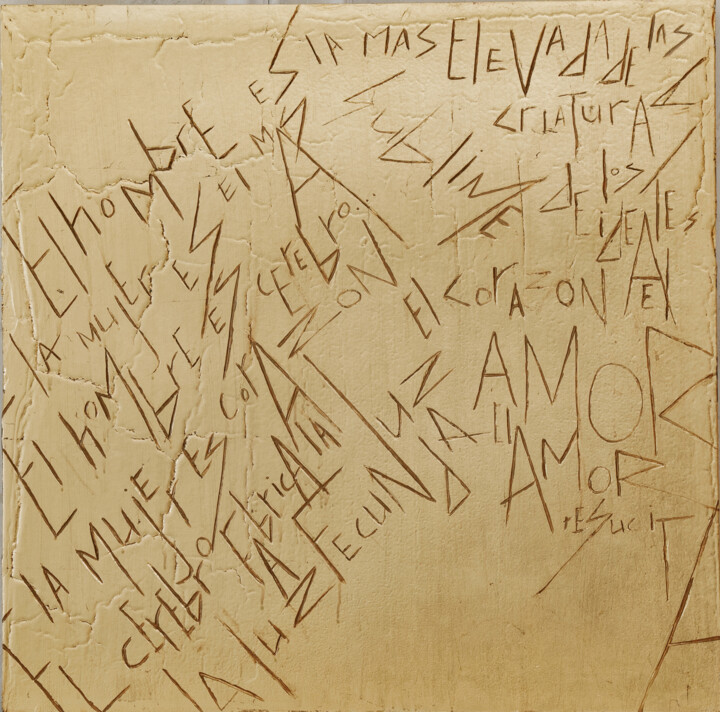 El hombrE Es lA MAS ElEVAdA dE lAs criAturAS
lA MujEr Es El MAS SUBLIME dE los idEAlEs
El hoMbrE Es cErEbro...
lA MujEr Es corAZON
El cErEbro FAbricA lA luZ El corAZON El AMOR
lA luZ FEcuNDA El AMoR rESuciTA